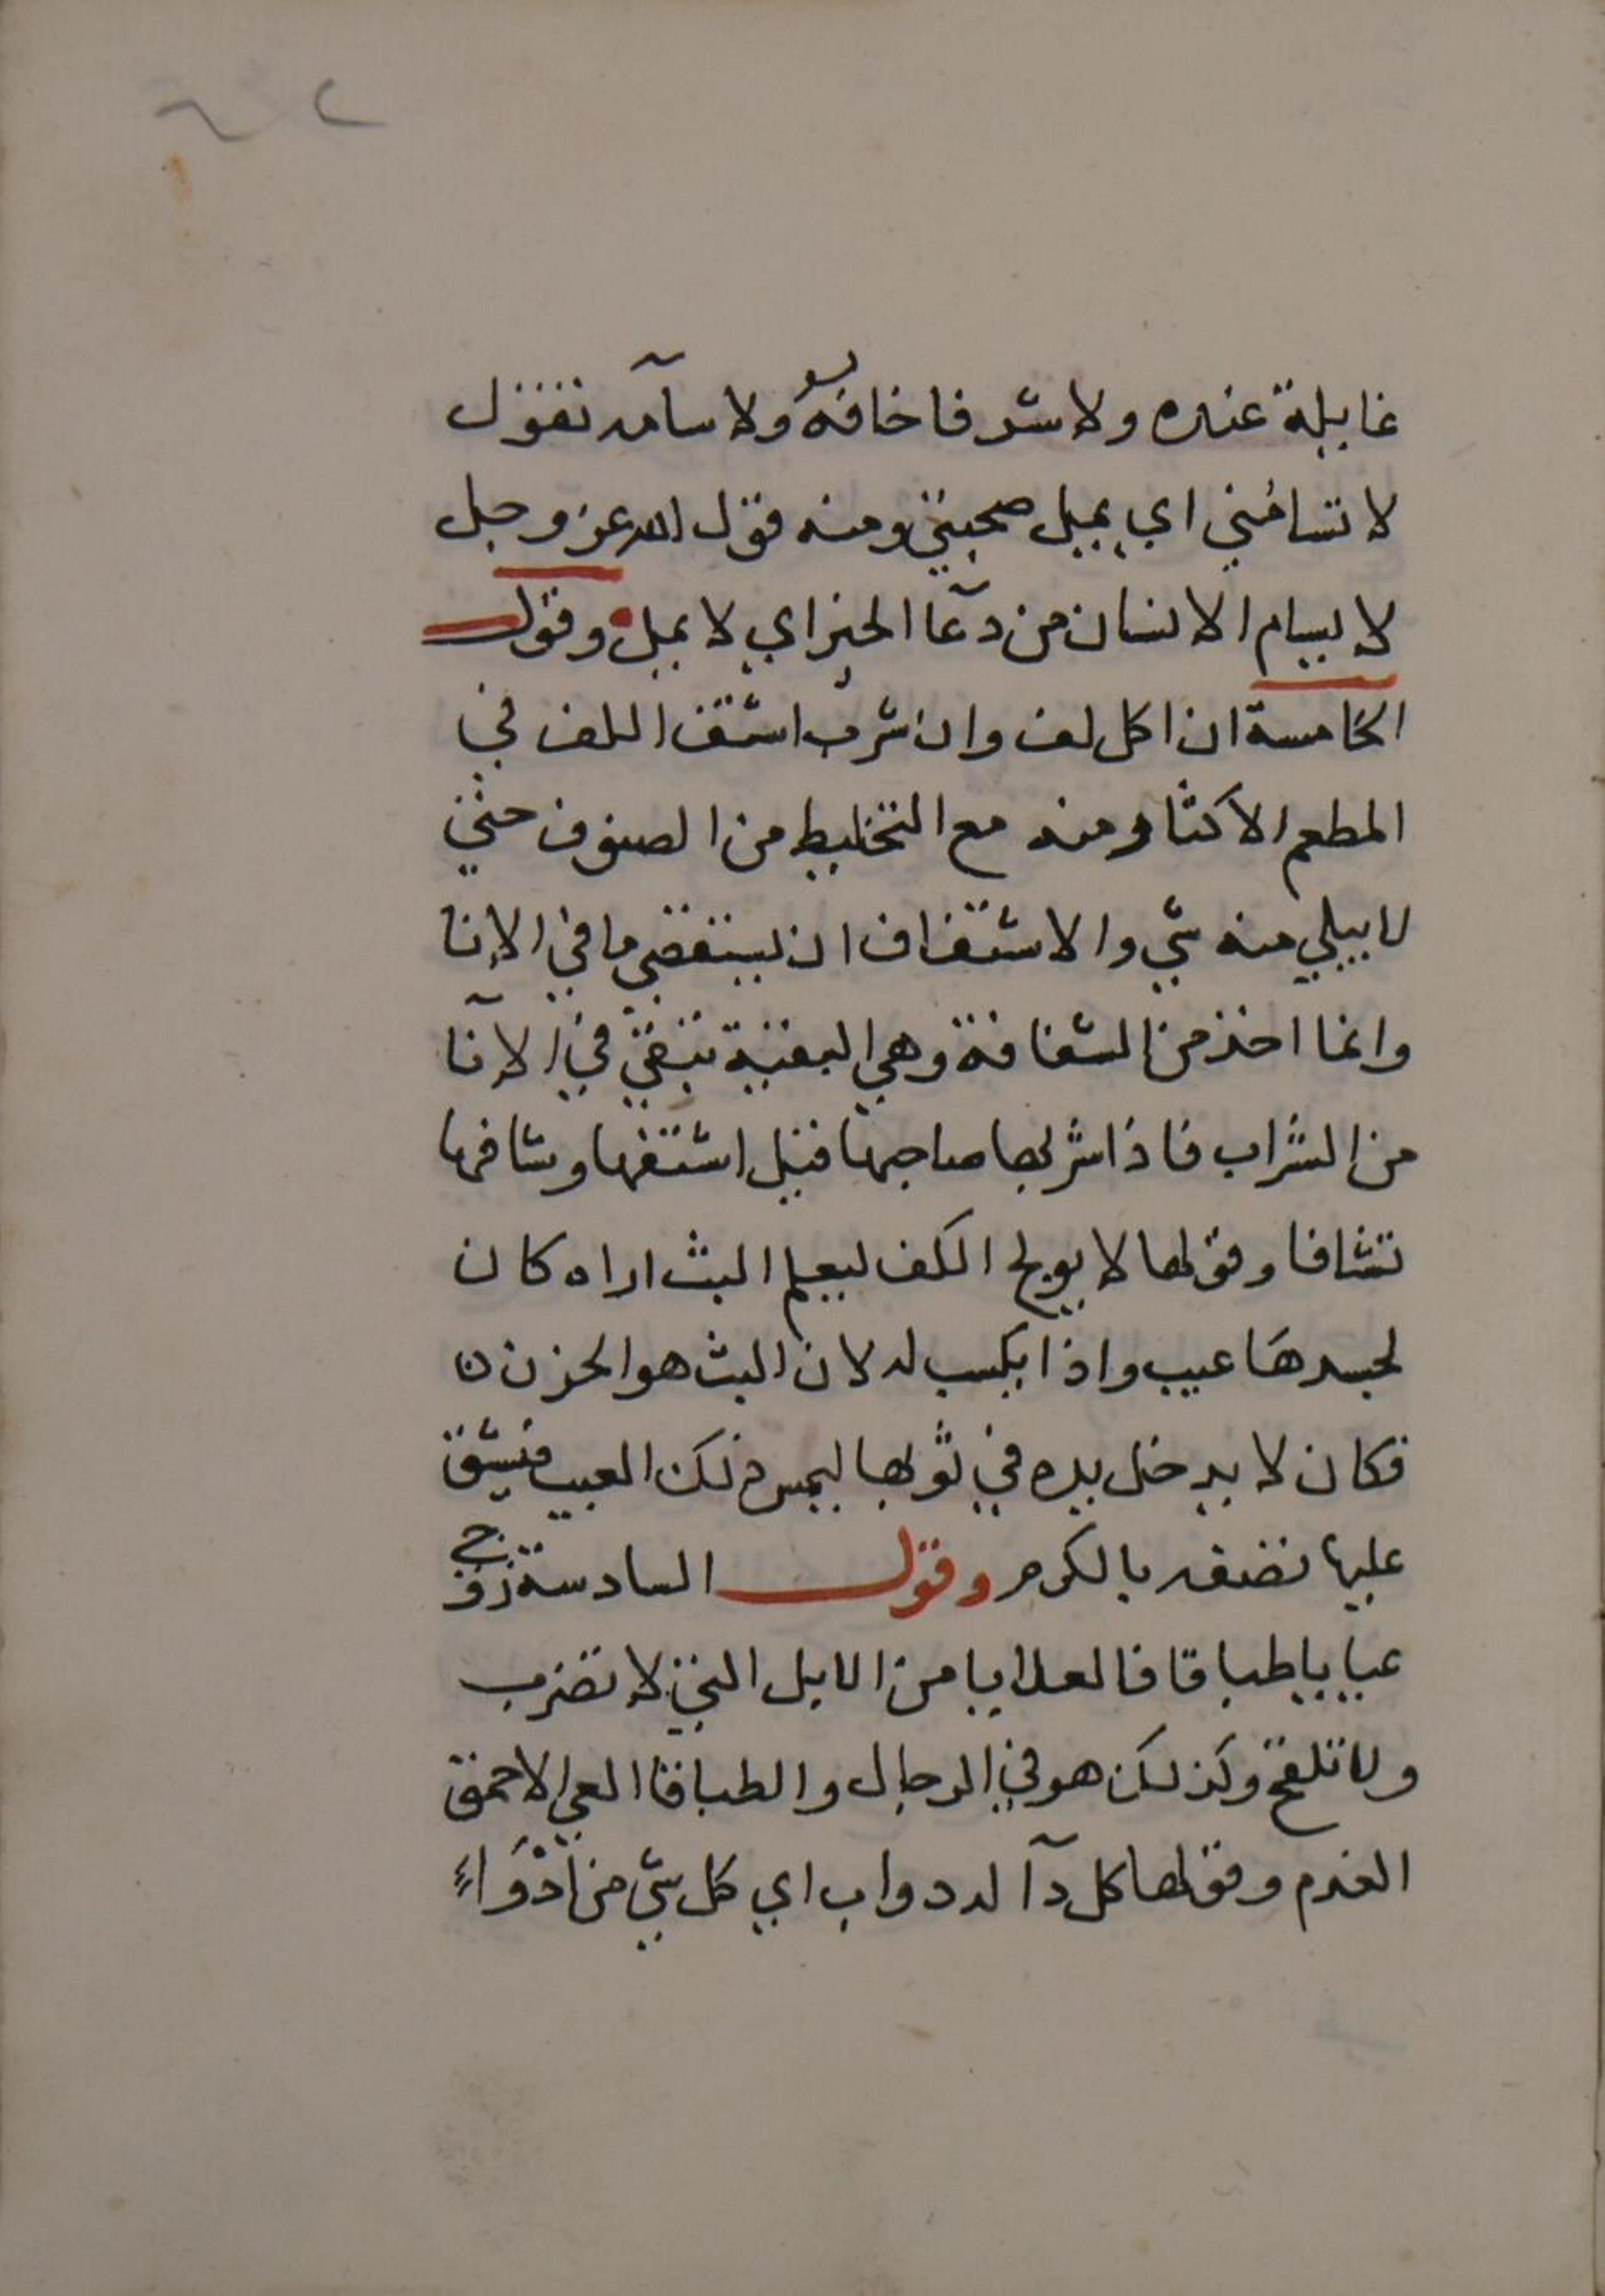 غايلة عنده ولا شر فاخافه ولا سآمه تقول
لا تسامني اي يميل صحبتي ومنه قول الله عز وجل
لا يسام الانسان من دعآ الخير اي لا يمل وقول
الخامسة ان اكل لف وان شرب اشتف اللف في
المطعم الاكثار منه مع التخليط من الصنوف حتي
لا يبلي منه شي والاشتفاف ان يستقضي ما في الانا
وانما اخذ من الشفافة وهي البقية تبقي في الآنا
من الشراب فاذا شربها صاحبها قيل اشتفها وشافها
تشافا وقولها لا يولج الكف ليعلم البث اراه كان
بجسدها عيب واذا يكسب له لان البث هو الحزن ن
فكان لا يدخل يده في ثوبها ليمس ذلك العيب فيشق
عليها تضفه بالكرم وقول السادسة زوجي
عيايا طباقا فالعيايا من الابل التي لا تضرب
ولا تلقح وكذلك هو في الرجال والطباقا العي الاحمق
الفدم وقولها كل دآ له دوا اب اي كل شي من ادْوَاءِ